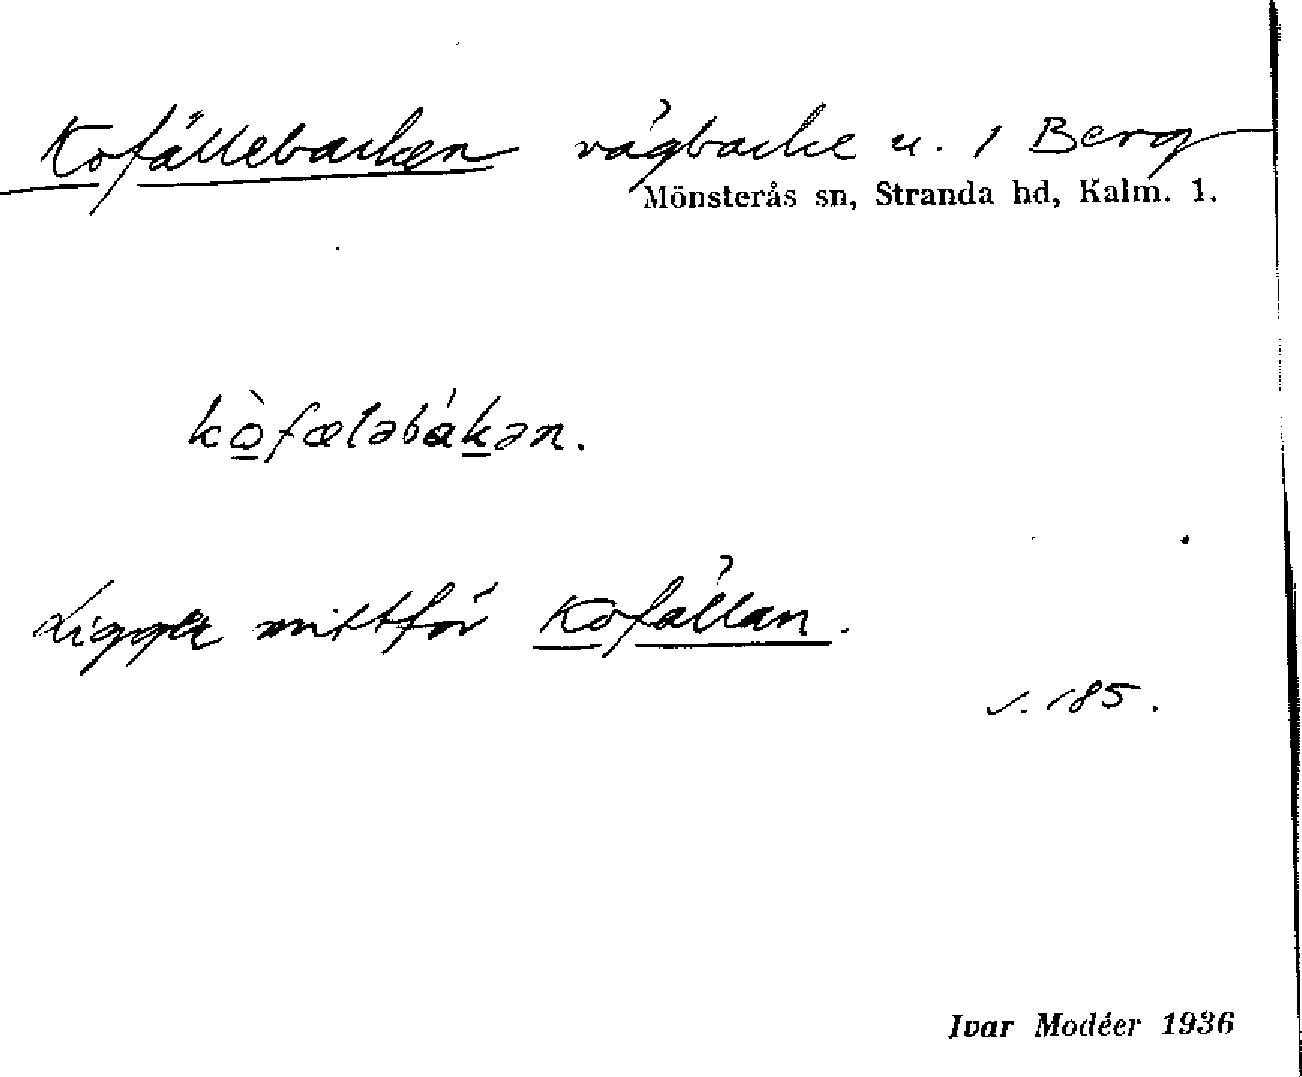 Kofällebacken vägbacke u. 1 Berg
Mönsterås sn, Stranda hd, Kalm. l.
kòfæləbákən.
Ligger mittför Kofällan.
s. 185.
Ivar Modéer 1936